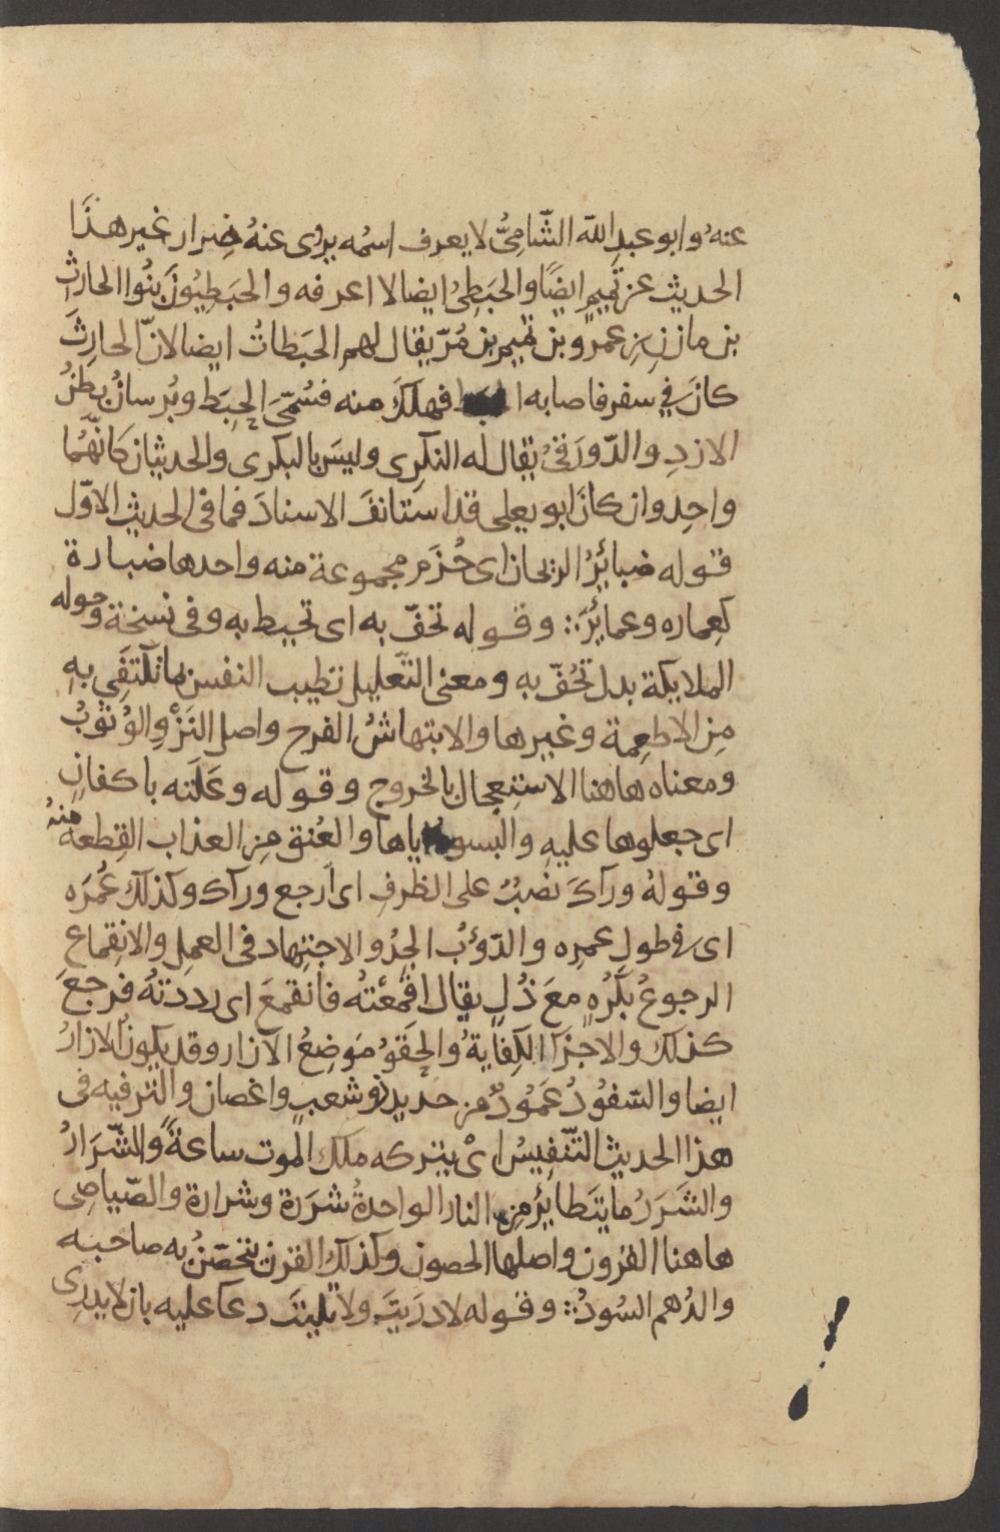 عنه وابو عبد الله الشّاميُّ لا يعرف اسمُه يروى عنهُ ضِرار غير هذَا
الحديث عن تَميمٍ ايضًا والحَبَطِىُّ ايضا لا اعرفه والحَبَطِيُّونَ بنُوا الحارِثِ
بن مازنِ بنِ عمرو بن تميم بن مُرّ يقال لهم الحَبَطاتُ ايضا لانّ الحارِثَ
كانَ في سفر فاصابه الحبط فهلكَ منه فسُمّىَ الحِبَط وبُرسانُ بطنُ
الازدِ والدّورَقىُّ يقال له النكرِى وليسَ بالبكرى والحديثان كانّهُما
واحِد وان كانَ ابو يعلى قد استانفَ الاسنادَ فما فى الحديث الاوّل
قوله ضبائِرُ الريحان اى حُزَم مجموعة منه واحدها ضبارة
كعِماره وعمائِرُ ∴ وقوله تحَفّ به اى تحيط به وفى نسخة وحوله
الملايكة بدل تَحُفّ به ومعنى التّعليل تطييب النفس بما تكتَفِي بهِ
مِن الاطعِمة وغيرها والابتهاشُ الفرح واصل النَزْوِ الوُثوْبُ
ومعناه هاهنا الاستِعجال بالخروج وقوله وعَلَته باكفانٍ
اى جعلوها عليهِ والبسوه اياها والعُنق مِن العذاب القِطعة منهُ
وقولهُ ورآكَ نصبٌ على الظرفِ اى اَرجع ورآك وكذلك عُمُرَه
اى فى طولِ عمرِه والدّؤبُ الجِدُّ والاجتِهاد فى العمل والانِقماع
الرجوعُ بكُرْهٍ معَ ذُلٍ يقال اقمعْتُه فانقمعَ اى رددتهُ فرجعَ
كذلك والاجزآ الكِفايةُ والحِقوُ مَوضِعُ الآزار وقد يكونُ الازارُ
ايضا والسّفوُدُ عَموُدٌ من حديد ذو شعبٍ واغصان والترفيه فى
هذا الحديث التّنفِيسُ اىْ يتركه ملك الموت ساعةً والشّرَارُ
والشَرَرُ ما يَتَطايرُ مِن النار الواحدةُ شرَرة وشرارة والصّياصِى
هاهنا القرُون واصلها الحصون وكذلك القرن يتحصّنُ به صاحبه
والدُهم السُودُ ∴ وقوله لا درَيتَ ولا تليتَ دعا عليه بان لا يدرِى